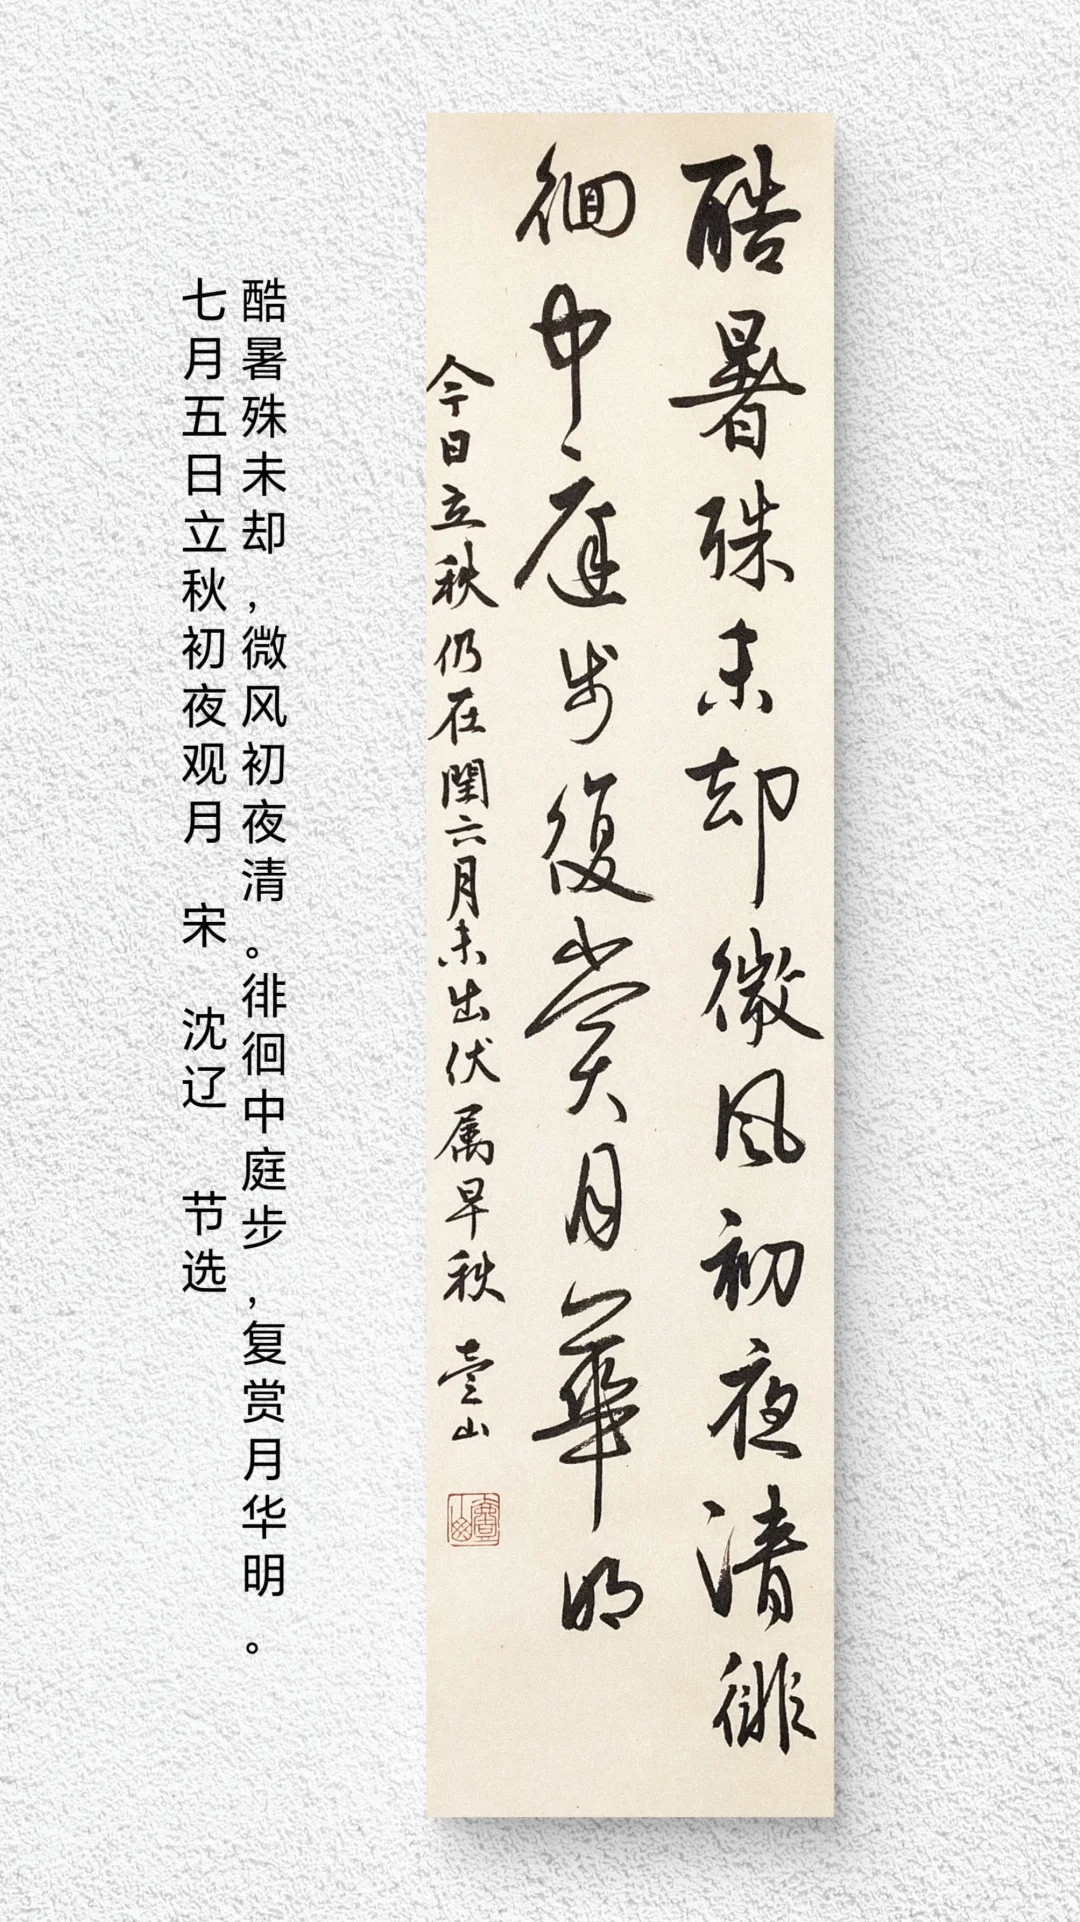 酷暑殊未却微风初夜清徘
徊中庭步復赏月華明
今日立秋仍在闰六月未出伏属早秋 壹山
酷暑殊未却，微风初夜清。徘徊中庭步，复赏月华明。
七月五日立秋初夜观月 宋 沈辽 节选